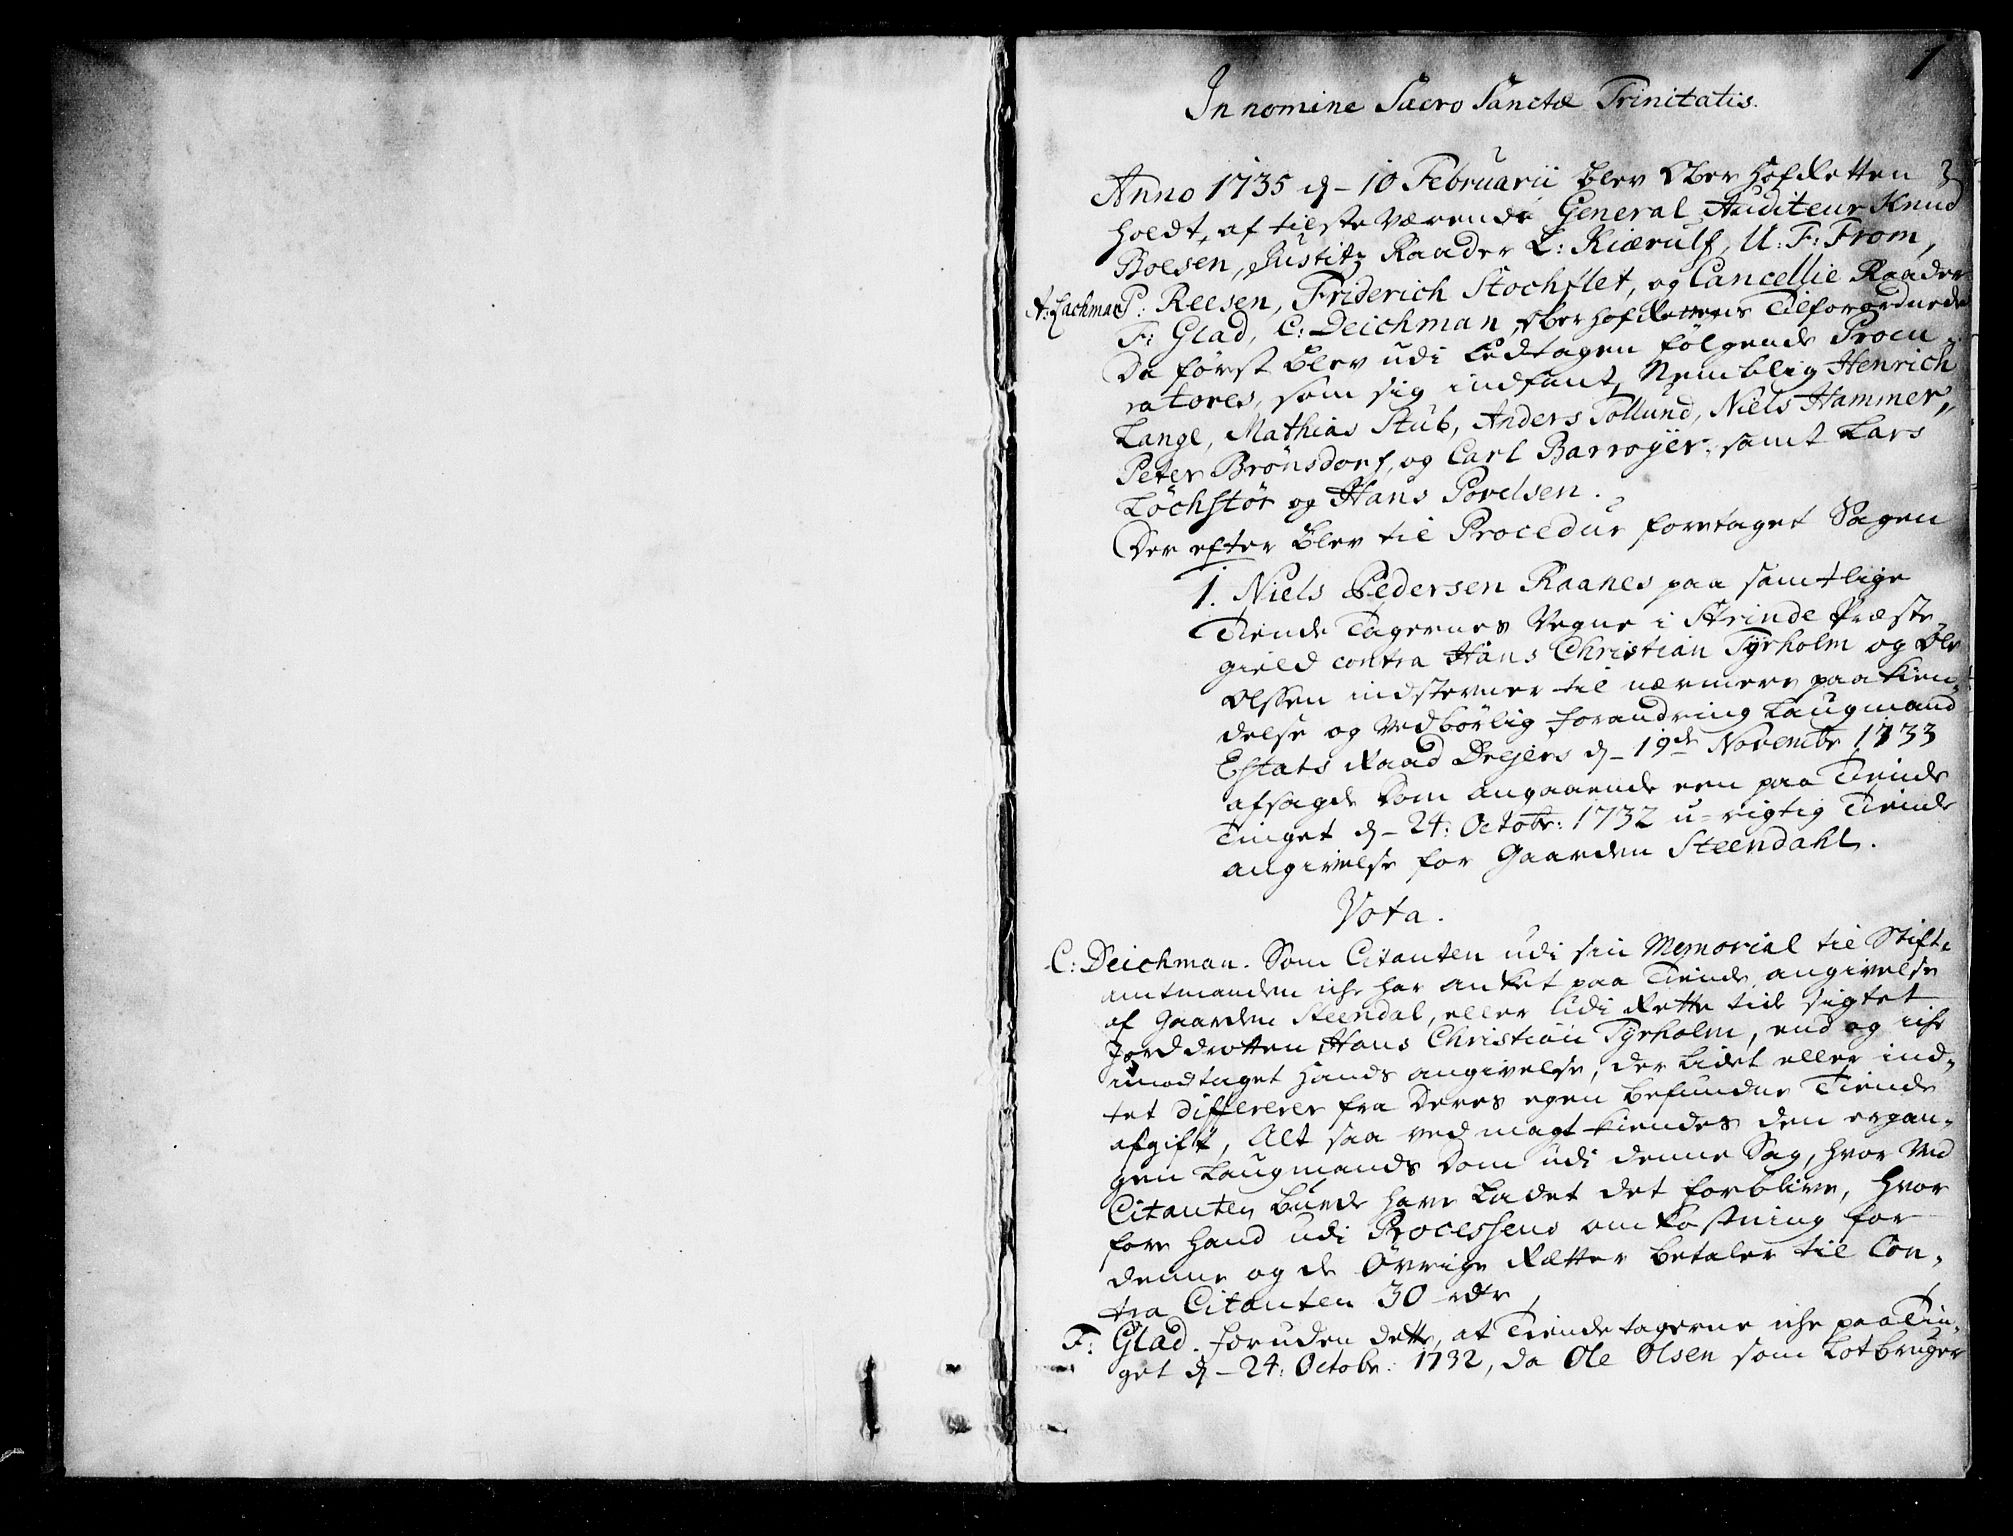 1
In nomine Sacro Sanctæ Trinitatis.
Anno 1735 d. 10 Februarii blev Ober Hof Retten
holdt, af tilstæværende General Auditeur Knud
Boesen, Justitz Raader L: Kiærulf, U: F: From,
A: Lachman P: Reesen, Friderich Stochflet, og Cancellie Raader
F: Glad, C: Deichman, Ober Hof Rettens Tilforordnede
Da først blev udi Eedtagen følgende Procu-
ratores, som sig indfant, Nemblig Henrich
Lange, Mathias Stub, Anders Tollund, Niels Hammer,
Peter Brönsdorf, og Carl Barroyer, samt Lars
Löchstör og Hans Povelsen.
Der efter blev til Procedur foretaget Sagen
1. Niels Pedersen Raanes paa samtlige
Tiende Tagernes Vegne i Strinde Præste-
gield contra Hans Christian Tyrholm og Ole
Olssen indstevner til nærmere paakien-
delse og vedbörlig forandring Laugmand
Estats Raad Dreyers d. 19de Novembr 1733
afsagde Dom angaaende een paa Tiende
Tinget d. 24: Octobr: 1732 u-rigtig Tiende
angivelse for Gaarden Steendahl.
Vota.
C: Deichman. Som Citanten udi sin Memorial til Stift-
amtmanden iche har anket paa Tiende angivelse
af Gaarden Steendal, eller udi Rette tiltigtet
Jorddrotten Hans Christian Tyrholm, end og iche
imodtaget hands angivelse, der lidet eller ind-
tet differerer fra deres egen befundne Tiende
afgift, Alt saa ved magt kiendes den ergan-
gen Laugmands Dom udi denne Sag, hvor ved
Citanten burde have ladet det forblive, hvor
fore hand udi Processens omkostning for
denne og de Øvrige Rætter betaler til Con-
tra Citanten 30 rdr
F: Glad. foruden dette, at Tiendetagerne iche paa Tin-
get d. 24: Octobr: 1732, da Ole Olsen som Lotbruger